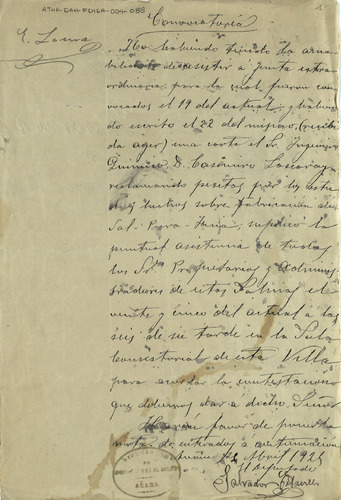 ATHA-DAH-FCHSA-004-088
Convocatoria
No habiendo tenido la ama-
bilidad de asistir á junta extra-
ordinaria para la cual fueron con-
vocados el 19 del actual, y habien-
do escrito el 22 del mismo (recibi-
da ayer) una carta el Sr. Ingeniero
Químico D. Casimiro
reclamando pesetas por los estu-
dios hechos sobre fabricación de
Sal-Para- suplico la
puntual asistencia de todos
los Sres. Propietarios y Adminis-
tradores de estas Salinas el
veinte y cinco del actual á las
seis de su tarde en la Sala
Consistorial de esta Villa
para acordar la contestación
que debemos dar á dicho Señor
Harán favor de poner la
nota de enterados á continuación
Abril 1925
El Diputado
Salvador